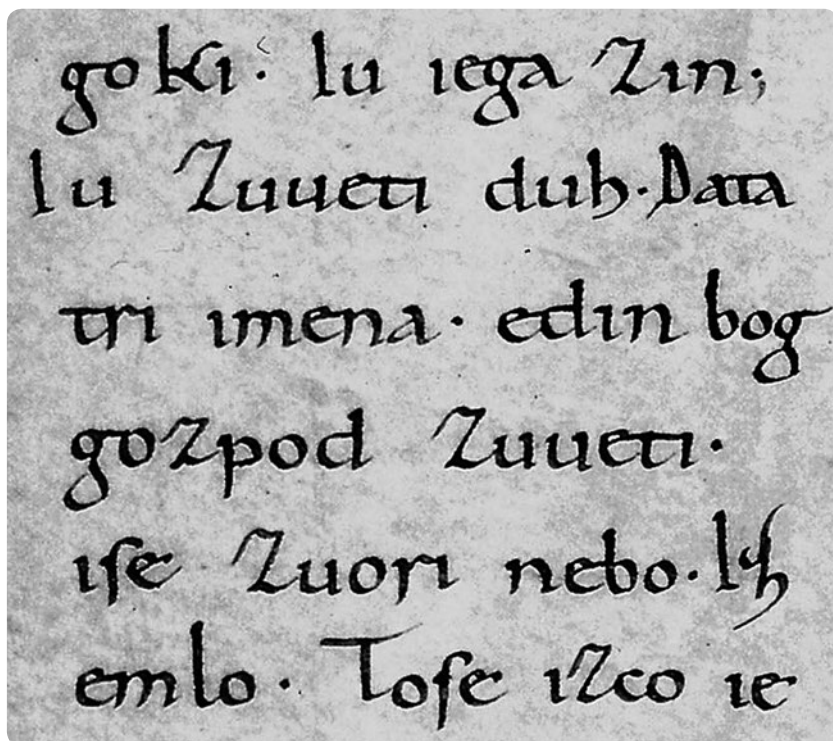 goki. Iu iega Zin;
Iu Zuueti duh. Data
tri imena. edin bog
gozpod Zuueti.
ise Zuori nebo.
emlo. Tose izco ie